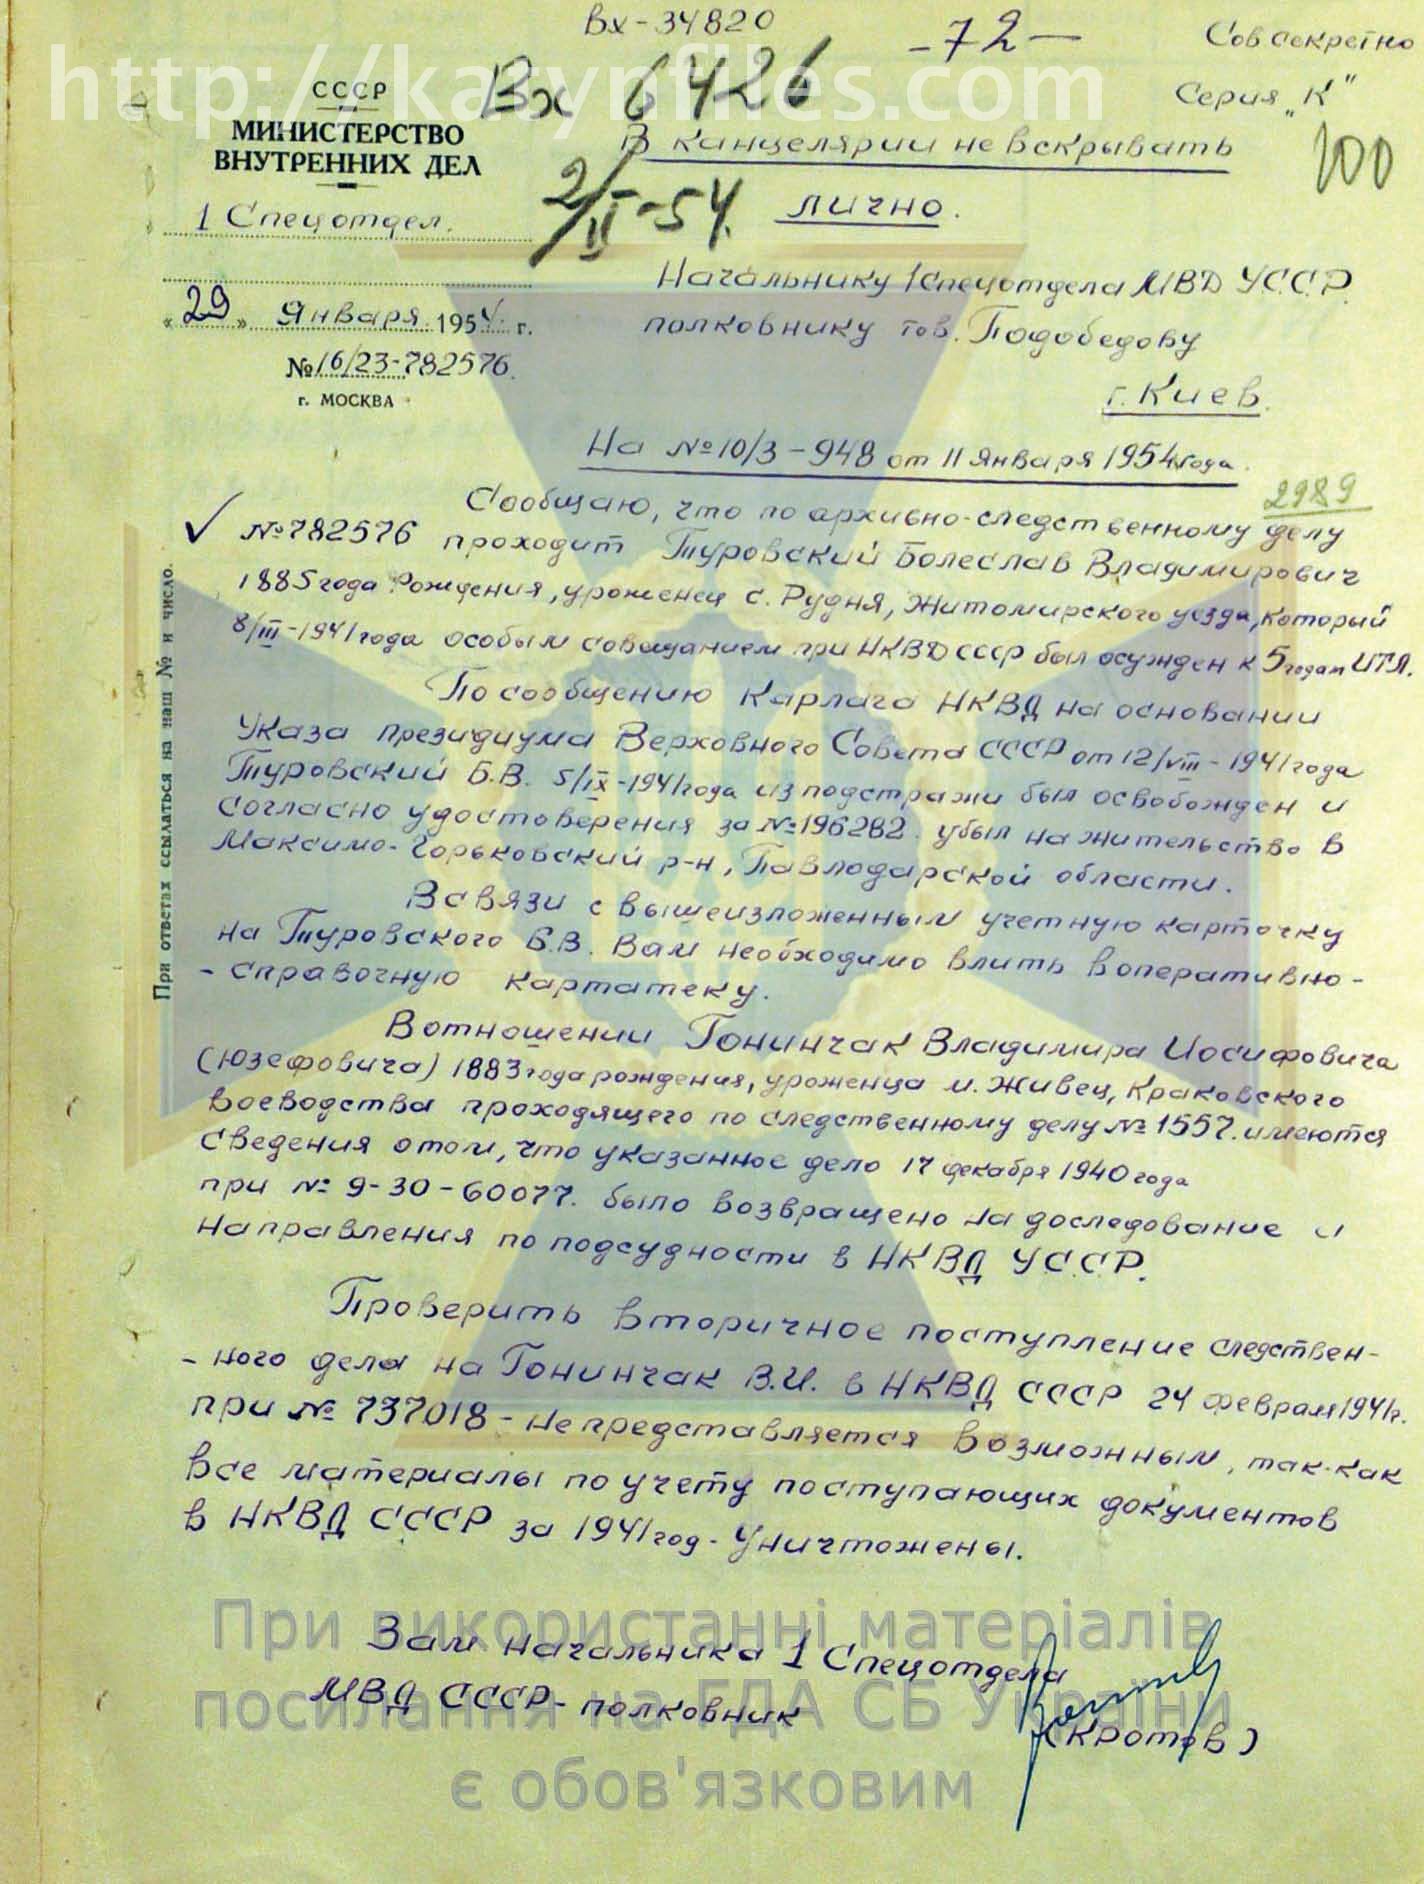 http://katynfiles.com
Вх-34820
-72-
Сов секретно
Серия „К"
Вх 6426
100
СССР
МИНИСТЕРСТВО
ВНУТРЕННИХ ДЕЛ
В канцелярии не вскрывать
2/II-54.
лично.
1 Спецотдел.
Начальнику 1 спецотдела МВД УССР.
полковнику тов. Подобедову
„29" Января 1954 г.
№ 16/23-782576.
г. МОСКВА
г. Киев.
На № 10/3-948 от 11 января 1954 года.
2989
Сообщаю, что по архивно-следственному делу
№ 782576 проходит Туровский Болеслав Владимирович
1885 года рождения, уроженец с. Рудня, Житомирского уезда, который
8/III-1941 года особым совещанием при НКВД СССР был осужден к 5 годам ИТЛ.
По сообщению Карлага НКВД на основании
Указа президиума Верховного Совета СССР от 12/VIII-1941 года
Туровский Б.В. 5/IX-1941 года из под стражи был освобожден и
согласно удостоверения за № 196282. убыл на жительство в
Максимо-Горьковский р-н, Павлодарской области.
В связи с вышеизложенным учетную карточку
на Туровского Б.В. Вам необходимо влить в оперативно-
-справочную картатеку.
В отношении Гонинчак Владимира Иосифовича
(Юзефовича) 1883 года рождения, уроженца м. Живец, Краковского
воеводства проходящего по следственному делу № 1557. имеются
сведения о том, что указанное дело 17 декабря 1940 года
при № 9-30-60077. было возвращено на доследование и
направления по подсудности в НКВД УССР.
Проверить вторичное поступление следствен-
-ного дела на Гонинчак В.И. в НКВД СССР 24 февраля 1941 г.
при № 737018 - не представляется возможным, так-как
все материалы по учету поступающих документов
в НКВД СССР за 1941 год - уничтожены.
При ответах ссылаться на наш № и число.
Зам начальника 1 Спецотдела
МВД СССР - полковник
(Кротов)
При використанні матеріалів
посилання на ГДА СБ України
є обов'язковим